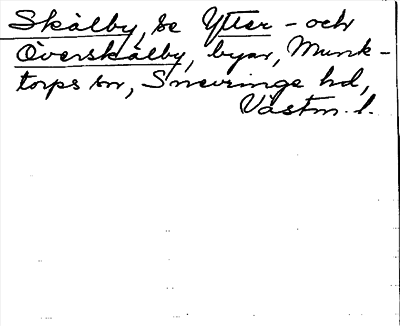 Skålby, se Ytter- och
Överskälby, byar, Munk-
torps sn, Snevringe hd,
Västm. l.